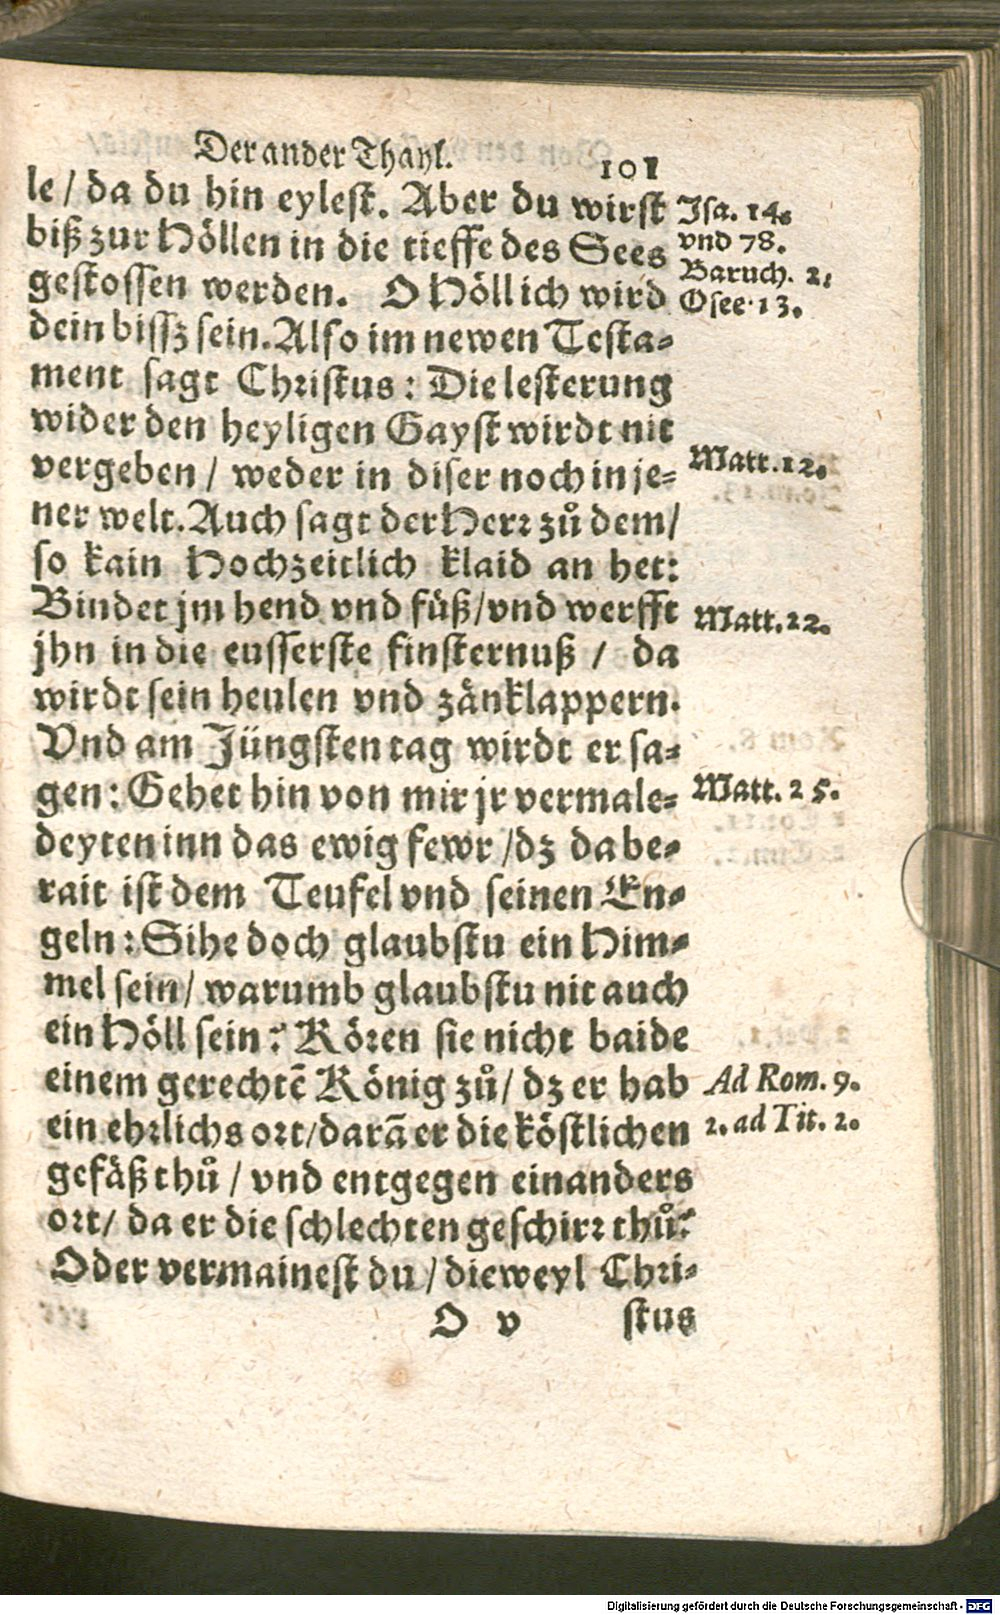 Der ander Thayl. 101
le / da du hin eylest. Aber du wirst
biß zur Höllen in die tieffe des Sees
gestossen werden. O Höll ich wird
dein bissz sein. Also im newen Testa-
ment sagt Christus: Die lesterung
wider den heyligen Gayst wirdt nit
vergeben / weder in diser noch in je-
ner welt. Auch sagt der Herr zů dem /
so kain Hochzeitlich klaid an het:
Bindet jm hend vnd füß / vnd werfft
jhn in die eusserste finsternuß / da
wirdt sein heulen vnd zänklappern.
Vnd am Jüngsten tag wirdt er sa-
gen: Gehet hin von mir jr vermale-
deyten inn das ewig fewr / dz da be-
rait ist dem Teufel vnd seinen En-
geln: Sihe doch glaubstu ein Him-
mel sein / warumb glaubstu nit auch
ein Höll sein? Kören sie nicht baide
einem gerechtē König zů / dz er hab
ein ehrlichs ort / darā er die köstlichen
gefäß thů / vnd entgegen einanders
ort / da er die schlechten geschirr thů?
Oder vermainest du / dieweyl Chri-
O v stus
Isa. 14.
vnd 78.
Baruch. 2.
Osee. 13.
Matt. 12.
Matt. 22.
Matt. 25.
Ad Rom. 9.
2. ad Tit. 2.
Digitalisierung gefördert durch die Deutsche Forschungsgemeinschaft - DFG